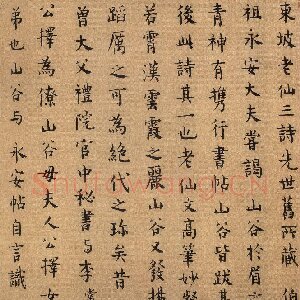 東坡老仙三詩先世舊所藏伯
祖永安大夫嘗謁山谷於眉
青神有攜行書帖山谷皆跋其
後此詩其一也老仙文高筆妙粲
若霄漢雲霞之麗山谷又發揚
蹈厲之可為絕代之珍矣昔
曾大父禮院官中祕書与李常
公擇為僚山谷母夫人公擇女
弟也山谷与永安帖自言識